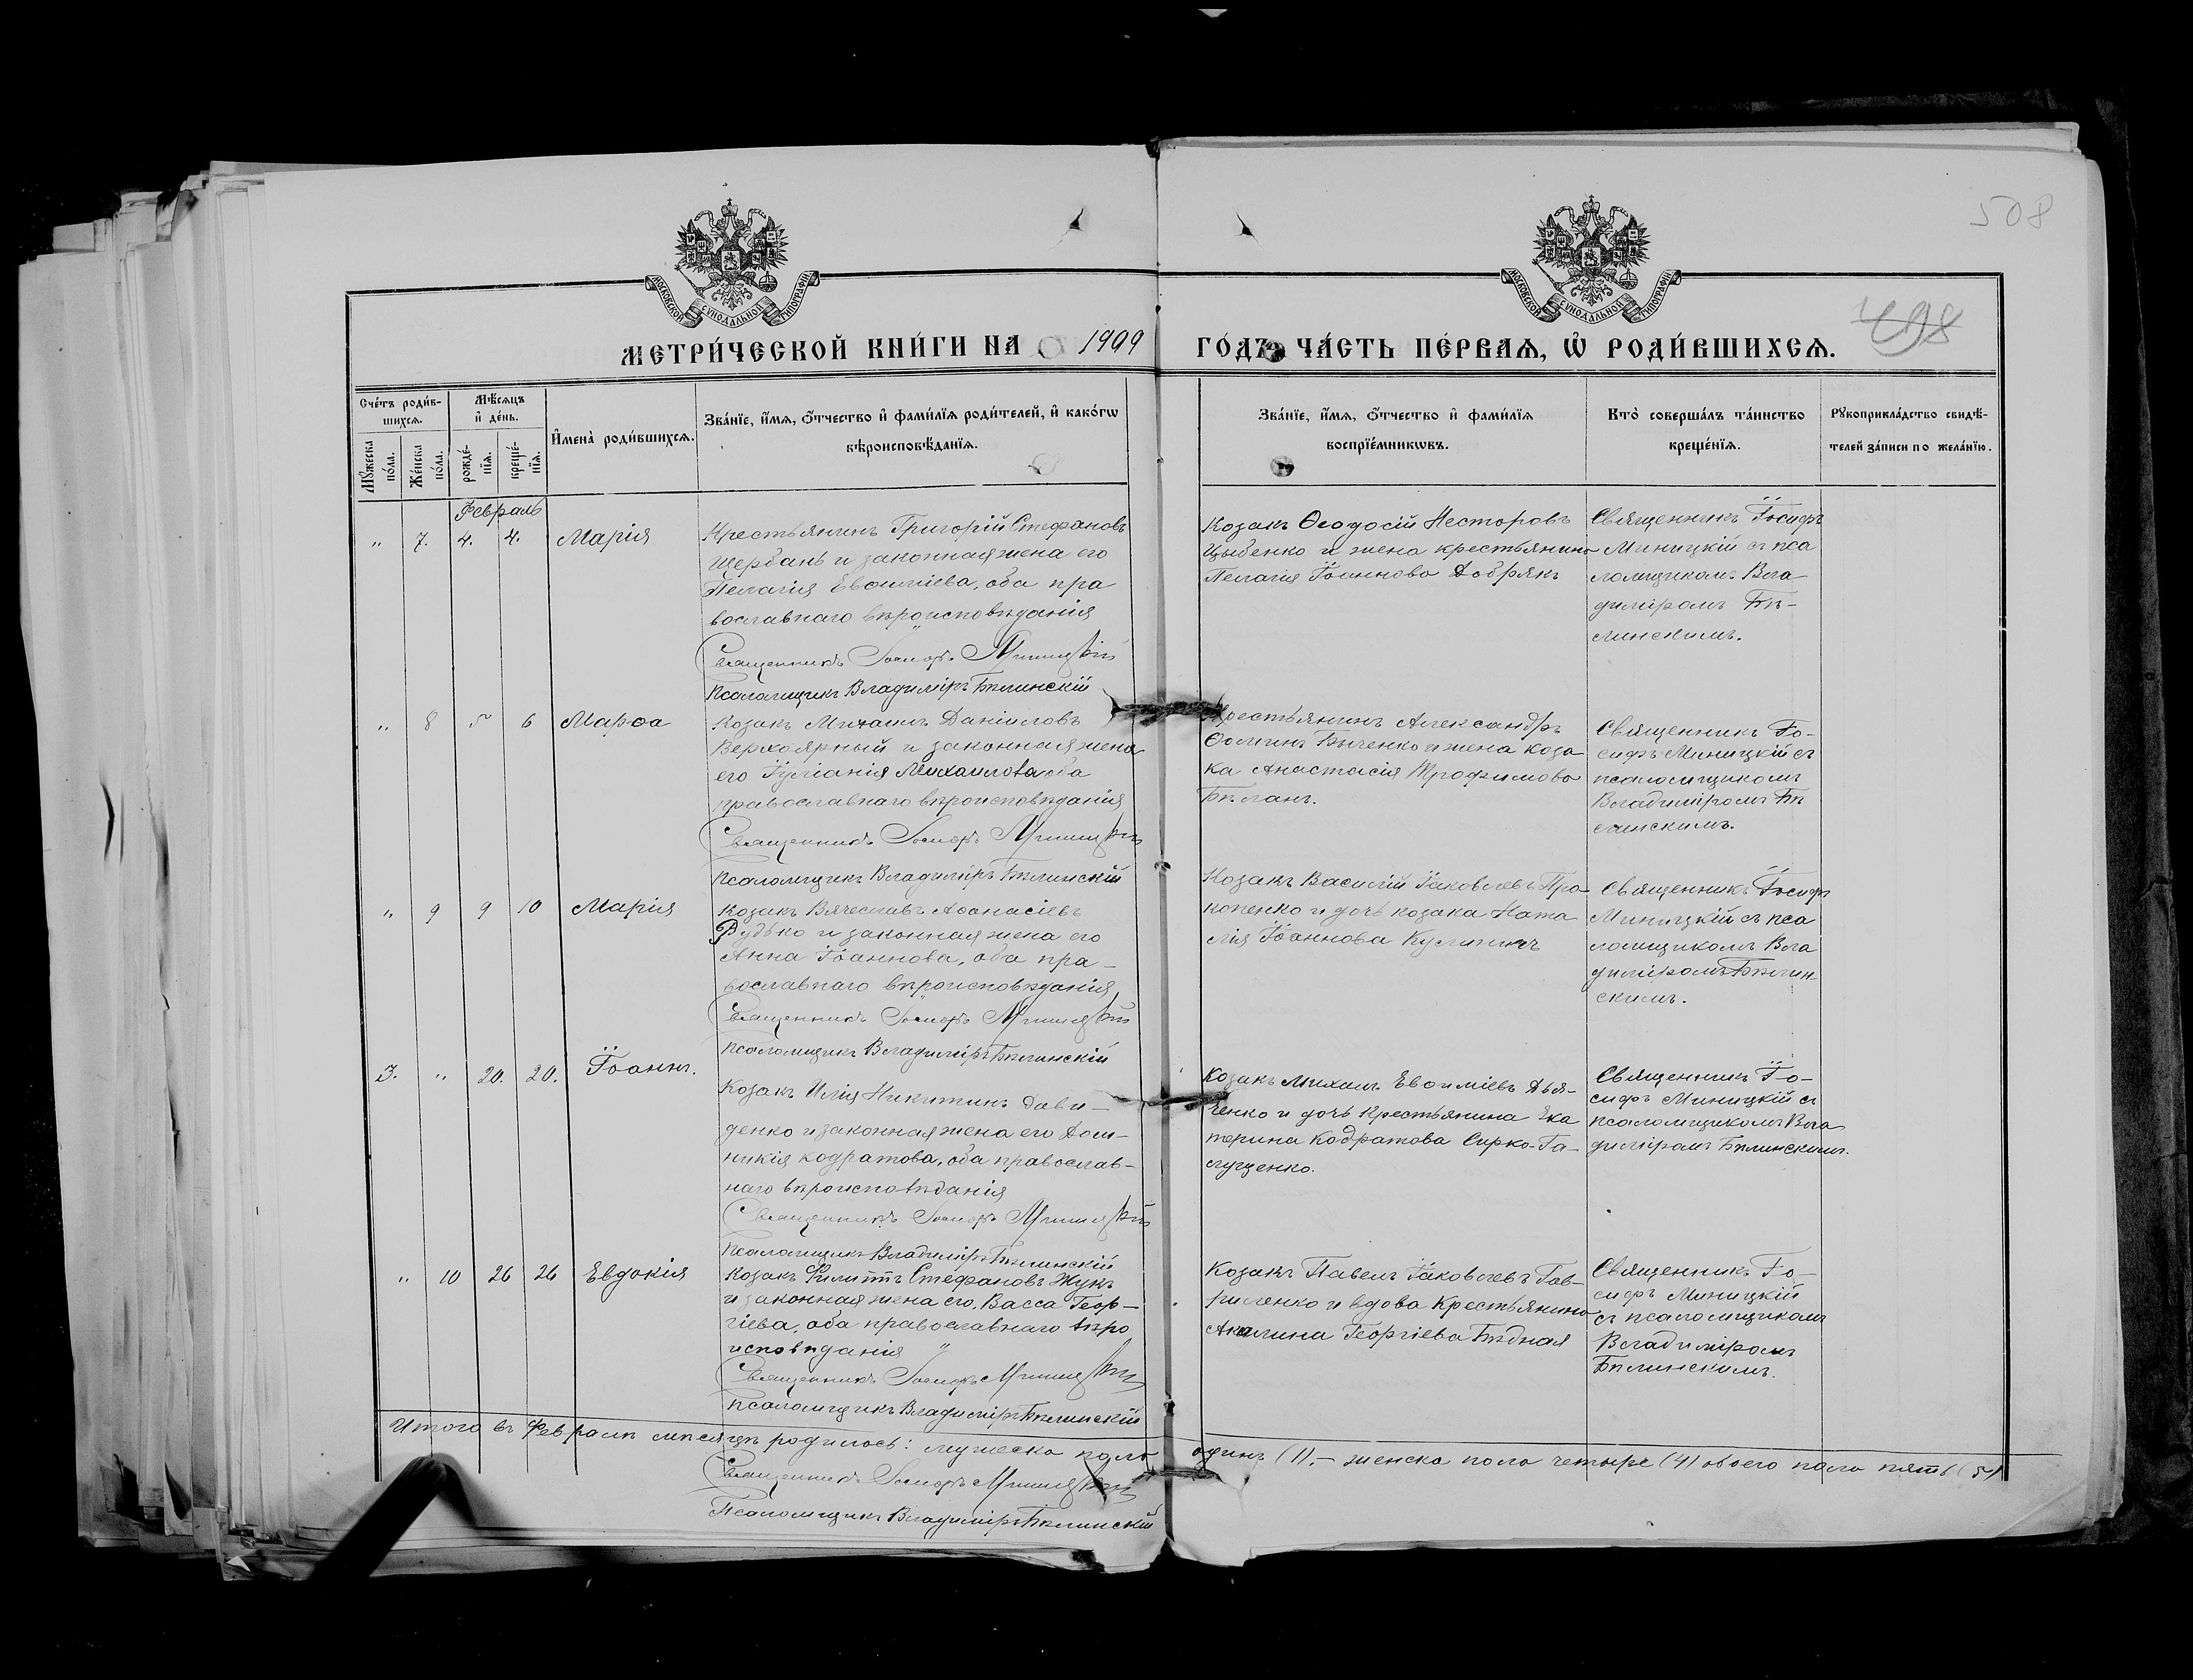 508
498
МОСКОВСКОЙ СѴНОДАЛЬНОЙ ТИПОГРАФІИ
МОСКОВСКОЙ СѴНОДАЛЬНОЙ ТИПОГРАФІИ
МЕТРИ́ЧЕСКОЙ КНИ́ГИ НА 1909 ГО́ДЪ ЧА́СТЬ ПЕ́РВАѦ, Ѽ РОДИ́ВШИХСѦ.
Сче́тъ роди́в-
шихсѧ.
Мꙋ́жеска по́ла.
Же́нска по́ла.
Мѣ́сѧцъ
и҆ де́нь.
рожде́-
нїѧ.
креще́-
нїѧ.
И҆мена̀ роди́вшихсѧ.
Зва́нїе, и҆́мѧ, ѻ҆́тчество и҆ фами́лїѧ роди́телей, и҆ како́гѡ
вѣроисповѣ́данїѧ.
Зва́нїе, и҆́мѧ, ѻ҆́тчество и҆ фами́лїѧ
воспрїе́мникѡвъ.
Кто̀ соверша́лъ та́инство
креще́нїѧ.
Рꙋкоприкла́дство свидѣ́-
телей за́писи по жела́нїю.
Февраль
" 7. 4. 4. Марія
Крестьянинъ Григорій Стефановъ
Щербань и законная жена его
Пелагія Евѳиміева, оба пра
вославнаго вѣроисповѣданія
Священникъ Іосифъ Миницкій
Псаломщикъ Владиміръ Бѣлинскій
Козакъ Ѳеодосій Несторовъ
Цыбенко и жена крестьянина
Пелагія Іоаннова Добрякъ
Священникъ Іосифъ
Миницкій съ пса
ломщикомъ Вла
диміромъ Бѣ-
линскимъ.
" 8 5 6 Марѳа
Козакъ Михаилъ Даніиловъ
Верхоярный и законная жена
его Іуліанія Михаилова оба
православнаго вѣроисповѣданія
Священникъ Іосифъ Миницкій
Псаломщикъ Владиміръ Бѣлинскій
Крестьянинъ Александръ
Ѳоминъ Быченко и жена коза
ка Анастасія Трофимова
Бѣланъ.
Священникъ Іо-
сифъ Миницкій съ
псаломщикомъ
Владиміромъ Бѣ
линскимъ.
" 9 9 10 Марія
Козакъ Вячеславъ Аѳанасіевъ
Рудько и законная жена его
Анна Іоаннова, оба пра-
вославнаго вѣроисповѣданія
Священникъ Іосифъ Миницкій
Псаломщикъ Владиміръ Бѣлинскій
Козакъ Василій Іаковлевъ Про-
копенко и дочь козака Ната
лія Іоаннова Кулиничъ
Священникъ Іосифъ
Миницкій съ пса
ломщикомъ Вла
диміромъ Бѣлин-
скимъ.
3. " 20. 20. Іоаннъ.
Козакъ Илія Никитинъ Дави-
денко и законная жена его Дом-
никія Кодратова, оба православ-
наго вѣроисповѣданія
Священникъ Іосифъ Миницкій
Псаломщикъ Владиміръ Бѣлинскій
Козакъ Михаилъ Евѳиміевъ Дья-
ченко и дочь крестьянина Ека
терина Кодратова Сирко-Га-
лущенко.
Священникъ Іо-
сифъ Миницкій съ
псаломщикомъ Вла
диміромъ Бѣлинскимъ.
" 10 26 26 Евдокія
Козакъ Филиппъ Стефановъ Жукъ
и законная жена его, Васса Геор-
гіева, оба православнаго вѣро
исповѣданія
Священникъ Іосифъ Миницкій
Псаломщикъ Владиміръ Бѣлинскій
Козакъ Павелъ Іаковлевъ Гав-
риленко и вдова крестьянина
Акилина Георгіева Бѣдная
Священникъ Іо-
сифъ Миницкій
съ псаломщикомъ
Владиміромъ
Бѣлинскимъ.
Итого въ Февралѣ мѣсяцѣ родилось: мужеска пола одинъ (1), - женска пола четыре (4) обоего пола пять (5)
Священникъ Іосифъ Миницкій
Псаломщикъ Владиміръ Бѣлинскій